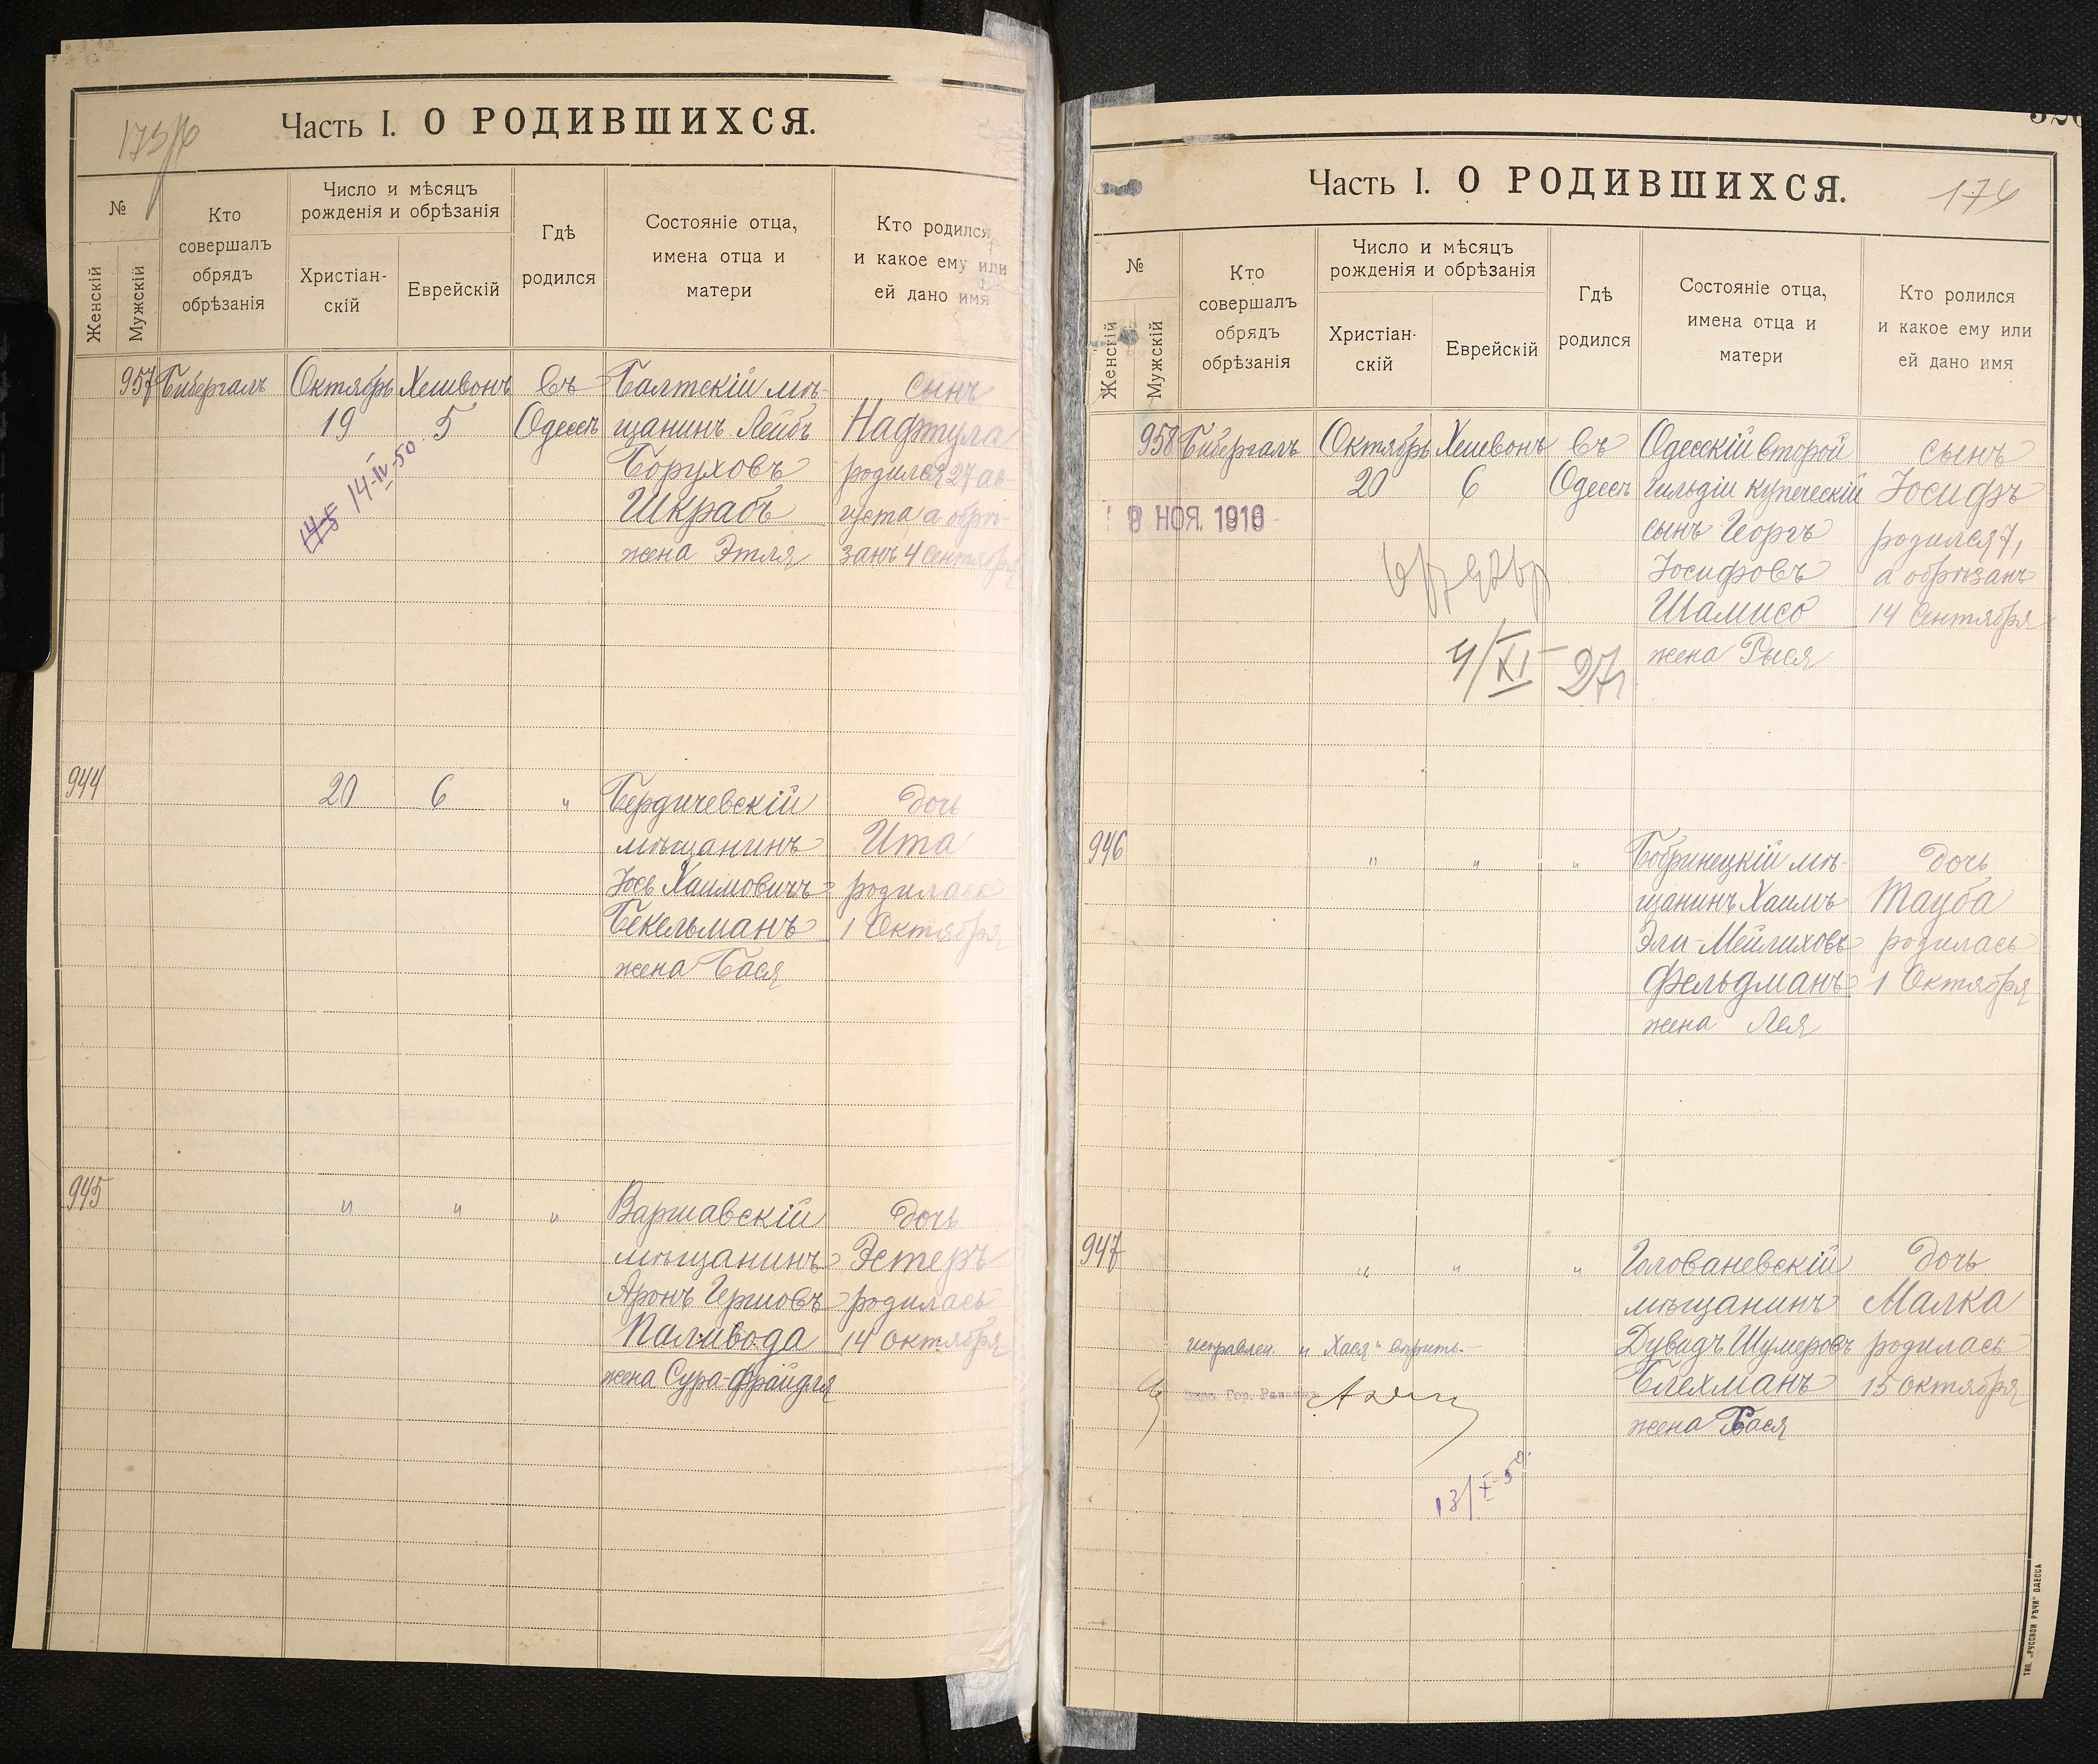 Часть I. О РОДИВШИХСЯ.
№
Женскій
Мужскій
Кто
совершалъ
обрядъ
обрѣзанія
Число и мѣсяцъ
рожденія и обрѣзанія
Христіан-
скій
Еврейскій
Гдѣ
родился
Состояніе отца,
имена отца и
матери
Кто родился
и какое ему или
ей дано имя
957 Бибергалъ Октябрь Хешвонъ въ Балтскій мѣ- сынъ
19 5 Одессѣ щанинъ Лейбъ Нафтула
Боруховъ родился 27 ав-
Шкрабъ густа а обрѣ-
жена Этля занъ 4 Сентября
14-IV-50
944 20 6 " Бердичевскій дочь
мѣщанинъ Ита
Іось Хаимовичъ родилась
Бекельманъ 1 Октября
жена Бася
945 " " " Варшавскій дочь
мѣщанинъ Эстеръ
Аронъ Гершовъ родилась
Паливода 14 октября
жена Сура-Фрайдля
Часть I. О РОДИВШИХСЯ.
174
№
Женскій
Мужскій
Кто
совершалъ
обрядъ
обрѣзанія
Число и мѣсяцъ
рожденія и обрѣзанія
Христіан-
скій
Еврейскій
Гдѣ
родился
Состояніе отца,
имена отца и
матери
Кто ролился
и какое ему или
ей дано имя
958 Бибергалъ Октябрь Хешвонъ въ Одесскій второй сынъ
20 6 Одессѣ гильдіи купеческій Іосифъ
9 НОЯ. 1916
сынъ Георгъ родился 7,
Іосифовъ а обрѣзанъ
Шамисъ 14 Сентября
жена Рыся
4/XI 27г
946 " " " Бобринецкій мѣ- дочь
щанинъ Хаимъ Тауба
Эли-Мейлиховъ родилась
Фельдманъ 1 Октября
жена Лея
947 " " " Голованевскій дочь
мѣщанинъ Малка
Дувидъ Шумеровъ родилась
Блехманъ 15 октября
жена Бася
исправлен. и "Хася" вѣрить.
Одес. Гор. Раввинъ
13/X-50.
ТИП. „РУССКОЙ РѢЧИ" ОДЕССА